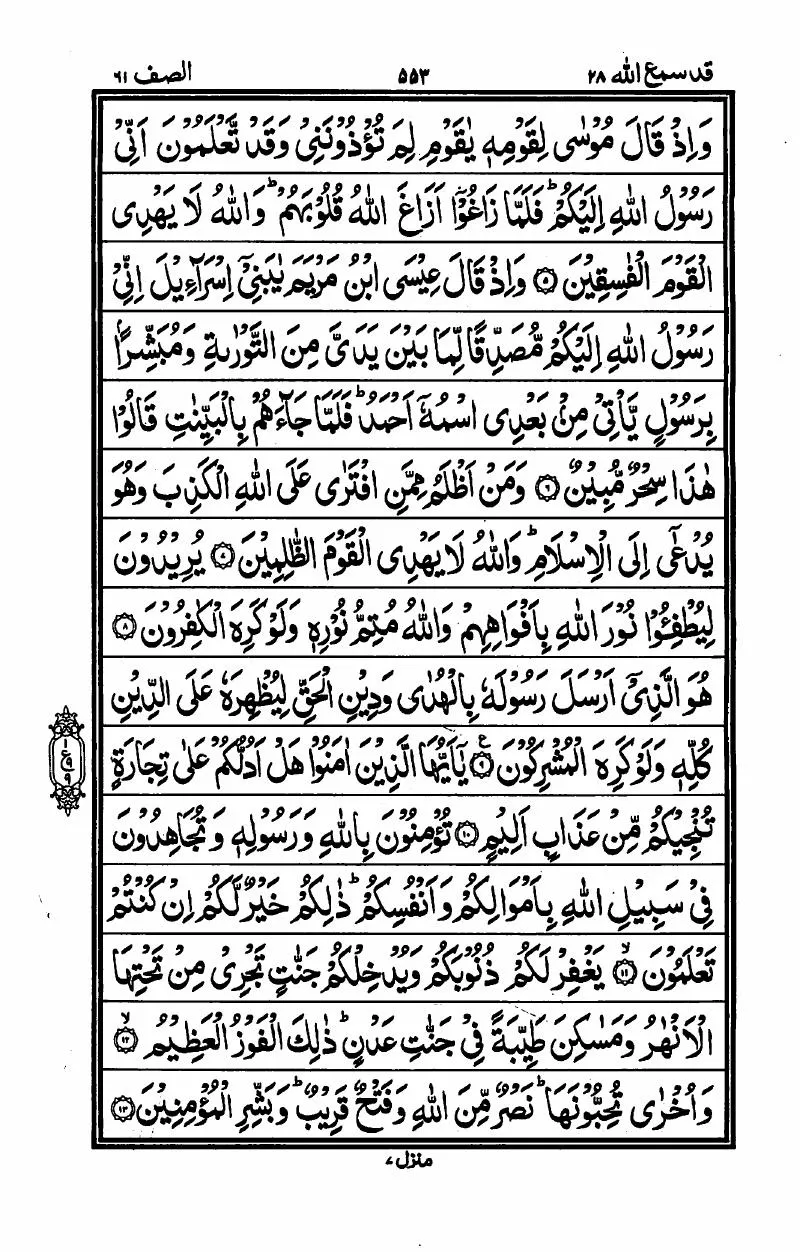 قد سمع الله ۲۸
۵۵۳
الصف ۶۱
وَاِذْ قَالَ مُوْسٰى لِقَوْمِهٖ يٰقَوْمِ لِمَ تُؤْذُوْنَنِيْ وَقَدْ تَّعْلَمُوْنَ اَنِّيْ
رَسُوْلُ اللّٰهِ اِلَيْكُمْ ؕ فَلَمَّا زَاغُوْۤا اَزَاغَ اللّٰهُ قُلُوْبَهُمْ ؕ وَاللّٰهُ لَا يَهْدِى
الْقَوْمَ الْفٰسِقِيْنَ ۝۵ وَاِذْ قَالَ عِيْسَى ابْنُ مَرْيَمَ يٰبَنِيْۤ اِسْرَآءِيْلَ اِنِّيْ
رَسُوْلُ اللّٰهِ اِلَيْكُمْ مُّصَدِّقًا لِّمَا بَيْنَ يَدَيَّ مِنَ التَّوْرٰىةِ وَمُبَشِّرًاۢ
بِرَسُوْلٍ يَّاْتِيْ مِنْۢ بَعْدِى اسْمُهٗۤ اَحْمَدُ ؕ فَلَمَّا جَآءَهُمْ بِالْبَيِّنٰتِ قَالُوْا
هٰذَا سِحْرٌ مُّبِيْنٌ ۝۶ وَمَنْ اَظْلَمُ مِمَّنِ افْتَرٰى عَلَى اللّٰهِ الْكَذِبَ وَهُوَ
يُدْعٰۤى اِلَى الْاِسْلَامِ ؕ وَاللّٰهُ لَا يَهْدِى الْقَوْمَ الظّٰلِمِيْنَ ۝۷ يُرِيْدُوْنَ
لِيُطْفِـُٔوْا نُوْرَ اللّٰهِ بِاَفْوَاهِهِمْ وَاللّٰهُ مُتِمُّ نُوْرِهٖ وَلَوْ كَرِهَ الْكٰفِرُوْنَ ۝۸
هُوَ الَّذِيْۤ اَرْسَلَ رَسُوْلَهٗ بِالْهُدٰى وَدِيْنِ الْحَقِّ لِيُظْهِرَهٗ عَلَى الدِّيْنِ
كُلِّهٖ وَلَوْ كَرِهَ الْمُشْرِكُوْنَ ۝۹ ع يٰۤاَيُّهَا الَّذِيْنَ اٰمَنُوْا هَلْ اَدُلُّكُمْ عَلٰى تِجَارَةٍ
۱
ع ۹
۹
تُنْجِيْكُمْ مِّنْ عَذَابٍ اَلِيْمٍ ۝۱۰ تُؤْمِنُوْنَ بِاللّٰهِ وَرَسُوْلِهٖ وَتُجَاهِدُوْنَ
فِيْ سَبِيْلِ اللّٰهِ بِاَمْوَالِكُمْ وَاَنْفُسِكُمْ ؕ ذٰلِكُمْ خَيْرٌ لَّكُمْ اِنْ كُنْتُمْ
تَعْلَمُوْنَ ۝۱۱ۙ يَغْفِرْ لَكُمْ ذُنُوْبَكُمْ وَيُدْخِلْكُمْ جَنّٰتٍ تَجْرِيْ مِنْ تَحْتِهَا
الْاَنْهٰرُ وَمَسٰكِنَ طَيِّبَةً فِيْ جَنّٰتِ عَدْنٍ ؕ ذٰلِكَ الْفَوْزُ الْعَظِيْمُ ۝۱۲ۙ
وَاُخْرٰى تُحِبُّوْنَهَا ؕ نَصْرٌ مِّنَ اللّٰهِ وَفَتْحٌ قَرِيْبٌ ؕ وَبَشِّرِ الْمُؤْمِنِيْنَ ۝۱۳
منزل ۷